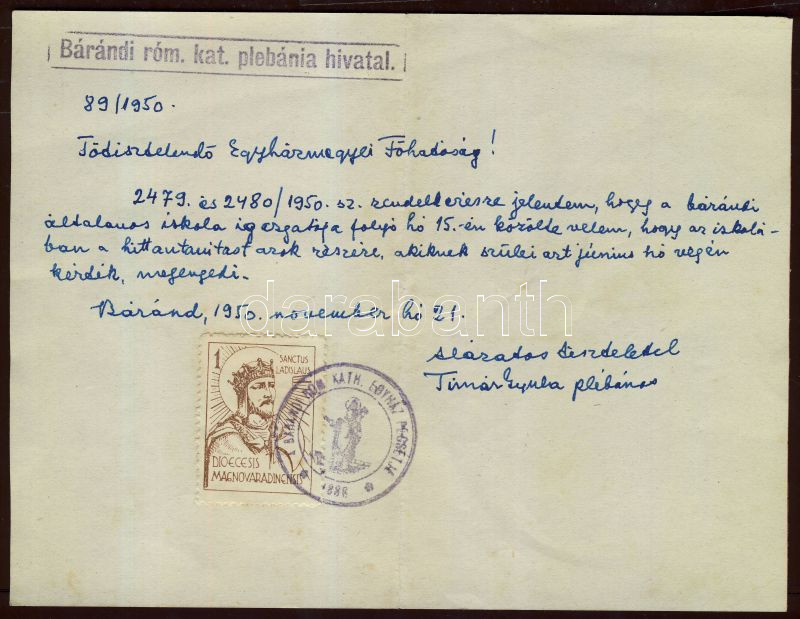 Bárándi róm. kat. plebánia hivatal.
89/1950.
Főtisztelendő Egyházmegyei Főhatóság!
2479. és 2480/1950. sz. rendeletkérésre jelentem, hogy a bárándi
általános iskola igazgatója folyó hó 15.-én közölte velem, hogy az iskolá-
ban a hittantanitást azok részére, akiknek szülei azt június hó végén
kérték, megengedi.
Báránd, 1950. november hó 21.
darabanth
alázatos tisztelettel
Timár Gyula plébános
1
SANCTUS
LADISLAUS
DIOECESIS
MAGNOVARADINENSIS
BÁRÁNDI RÓM. KATH. EGYHÁZ
1886